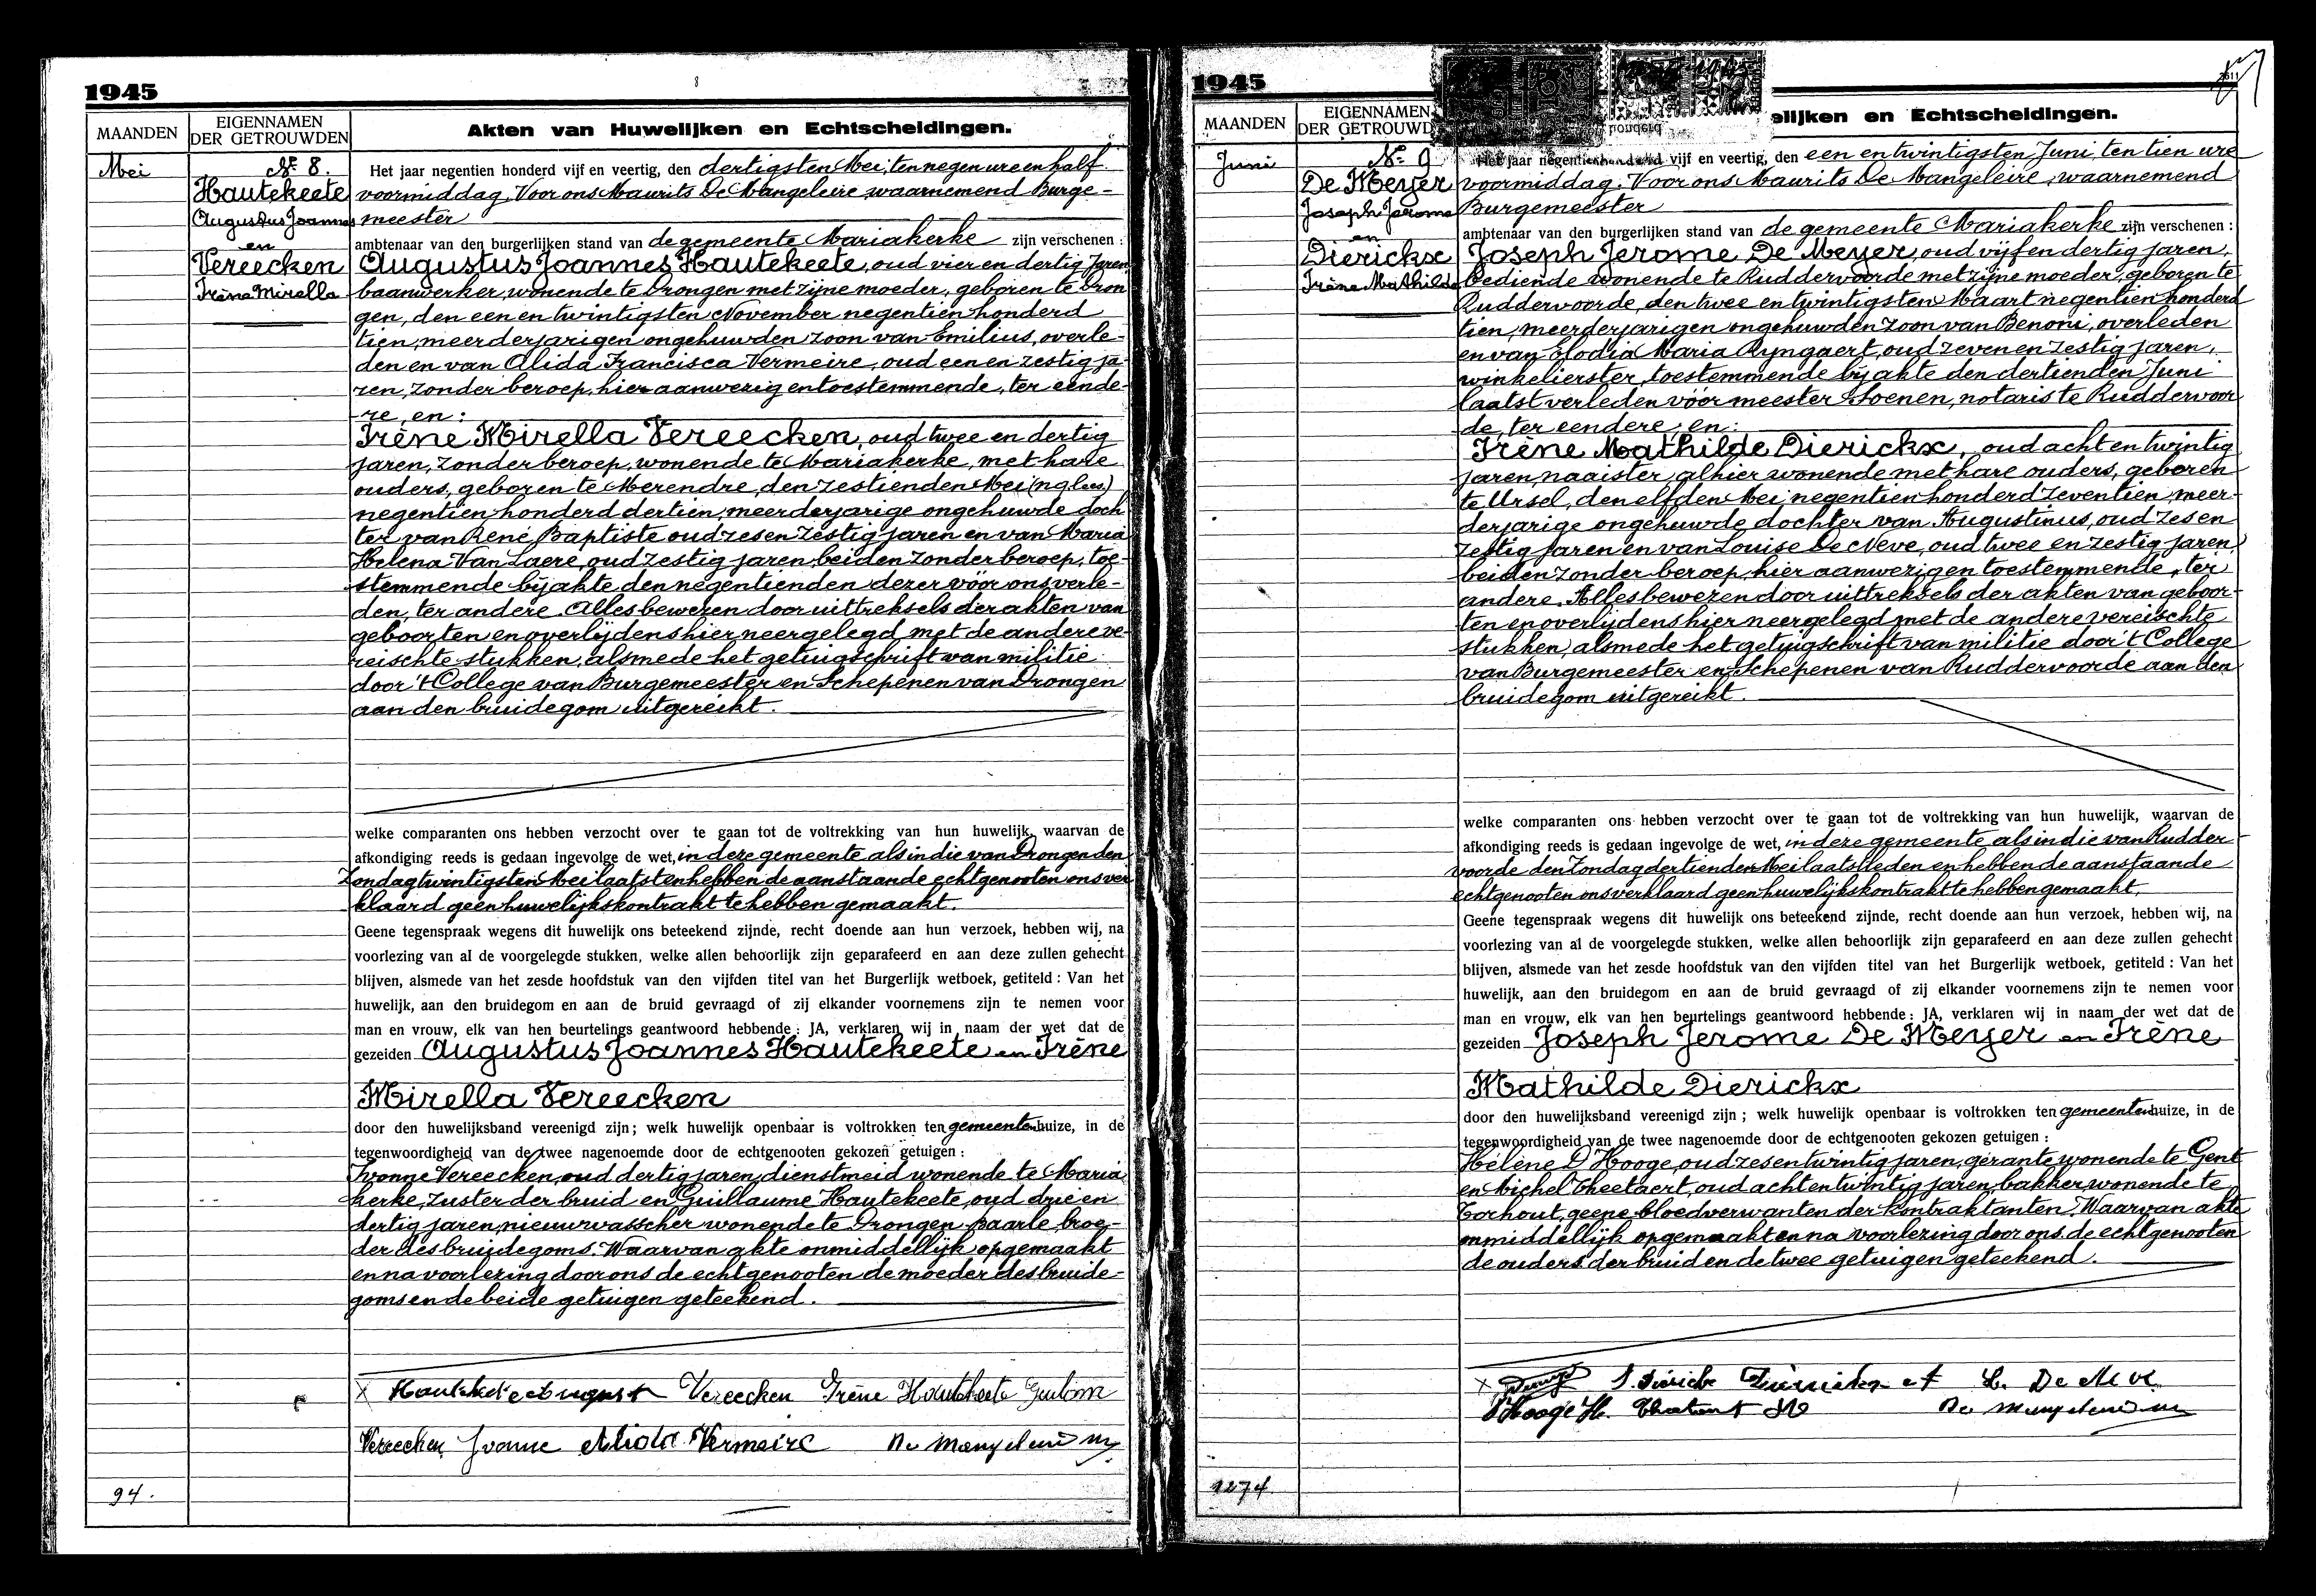 1945
8
MAANDEN
EIGENNAMEN
DER GETROUWDEN
Akten van Huwelijken en Echtscheidingen.
Mei
No 8.
Hautekeete
Augustus Joannes
en
Vereecken
Irène Mirella
Het jaar negentien honderd vijf en veertig, den dertigsten Mei, ten negen ure en half
voormiddag, Voor ons Maurits De Mangeleire, waarnemend Burge-
meester
ambtenaar van den burgerlijken stand van de gemeente Mariakerke zijn verschenen :
Augustus Joannes Hautekeete, oud vier en dertig jaren
baanwerker, wonende te Drongen met zijne moeder, geboren te Dron
gen, den een en twintigsten November negentien honderd
tien, meerderjarigen ongehuwden zoon van Emilius, overle-
den en van Alida Francisca Vermeire, oud een en zestig ja-
ren, zonder beroep, hier aanwezig en toestemmende, ter eende-
re en :
Irène Mirella Vereecken, oud twee en dertig
jaren, zonder beroep, wonende te Mariakerke, met hare
ouders, geboren te Merendre, den zestienden Mei
negentien honderd dertien, meerderjarige ongehuwde doch
ter van René Baptiste oud zes en zestig jaren en van Maria
Helena Van Laere, oud zestig jaren, beiden zonder beroep, toe-
stemmende bij akte den negentienden dezer vóór ons verle-
den, ter andere. Alles bewezen door uittreksels der akten van
geboorten en overlijdens hier neergelegd met de andere ve-
reischte stukken, alsmede het getuigschrift van militie
door 't College van Burgemeester en Schepenen van Drongen
aan den bruidegom uitgereikt.
welke comparanten ons hebben verzocht over te gaan tot de voltrekking van hun huwelijk, waarvan de
afkondiging reeds is gedaan ingevolge de wet, in deze gemeente als in die van Drongen den
Zondag twintigsten Mei laatst en hebben de aanstaande echtgenooten ons ver
klaard geen huwelijkskontrakt te hebben gemaakt.
Geene tegenspraak wegens dit huwelijk ons beteekend zijnde, recht doende aan hun verzoek, hebben wij, na
voorlezing van al de voorgelegde stukken, welke allen behoorlijk zijn geparafeerd en aan deze zullen gehecht
blijven, alsmede van het zesde hoofdstuk van den vijfden titel van het Burgerlijk wetboek, getiteld : Van het
huwelijk, aan den bruidegom en aan de bruid gevraagd of zij elkander voornemens zijn te nemen voor
man en vrouw, elk van hen beurtelings geantwoord hebbende : JA, verklaren wij in naam der wet dat de
gezeiden Augustus Joannes Hautekeete en Irène
Mirella Vereecken
door den huwelijksband vereenigd zijn ; welk huwelijk openbaar is voltrokken ten gemeentenhuize, in de
tegenwoordigheid van de twee nagenoemde door de echtgenooten gekozen getuigen :
Yvonne Vereecken, oud dertig jaren, dienstmeid wonende te Maria
kerke, zuster der bruid en Guillaume Hautekeete, oud drie en
dertig jaren, nieuwwasscher wonende te Drongen Baarle broe-
der des bruidegoms. Waarvan akte onmiddellijk opgemaakt
en na voorlezing door ons de echtgenooten de moeder des bruide-
goms en de beide getuigen geteekend.
X Hautekeete August Vereecken Irène Hautekeete
Vereecken Yvonne Alida Vermeire
94.
1945
MAANDEN
EIGENNAMEN
DER GETROUWD
elijken en Echtscheidingen.
Juni
No 9
De Meyer
Joseph Jerome
en
Dierickx
Irène Mathilde
Het jaar negentien honderd vijf en veertig, den een en twintigsten Juni, ten tien ure
voormiddag. Voor ons Maurits De Mangeleire, waarnemend
Burgemeester
ambtenaar van den burgerlijken stand van de gemeente Mariakerke zijn verschenen :
Joseph Jerome De Meyer, oud vijf en dertig jaren,
bediende wonende te Ruddervoorde met zijne moeder, geboren te
Ruddervoorde, den twee en twintigsten Maart negentien honderd
tien, meerderjarigen ongehuwden zoon van Benoni, overleden
en van Elodia Maria Ryngaert, oud zeven en zestig jaren,
winkelierster, toestemmende bij akte den dertienden Juni
laatst verleden vóór meester Soenen, notaris te Ruddervoor
de, ter eendere en :
Irène Mathilde Dierickx, oud acht en twintig
jaren, naaister, alhier wonende met hare ouders, geboren
te Ursel, den elfden Mei, negentien honderd zeventien, meer-
derjarige ongehuwde dochter van Augustinus, oud zes en
zestig jaren en van Louise De Neve, oud twee en zestig jaren,
beiden zonder beroep, hier aanwezig en toestemmende, ter
andere. Alles bewezen door uittreksels der akten van geboor-
ten en overlijdens hier neergelegd met de andere vereischte
stukken, alsmede het getuigschrift van militie door 't College
van Burgemeester en Schepenen van Ruddervoorde aan den
bruidegom uitgereikt.
welke comparanten ons hebben verzocht over te gaan tot de voltrekking van hun huwelijk, waarvan de
afkondiging reeds is gedaan ingevolge de wet, in deze gemeente als in die van Rudder-
voorde den Zondag dertienden Mei laatstleden en hebben de aanstaande
echtgenooten ons verklaard geen huwelijkskontrakt te hebben gemaakt.
Geene tegenspraak wegens dit huwelijk ons beteekend zijnde, recht doende aan hun verzoek, hebben wij, na
voorlezing van al de voorgelegde stukken, welke allen behoorlijk zijn geparafeerd en aan deze zullen gehecht
blijven, alsmede van het zesde hoofdstuk van den vijfden titel van het Burgerlijk wetboek, getiteld : Van het
huwelijk, aan den bruidegom en aan de bruid gevraagd of zij elkander voornemens zijn te nemen voor
man en vrouw, elk van hen beurtelings geantwoord hebbende : JA, verklaren wij in naam der wet dat de
gezeiden Joseph Jerome De Meyer en Irène
Mathilde Dierickx
door den huwelijksband vereenigd zijn ; welk huwelijk openbaar is voltrokken ten gemeentenhuize, in de
tegenwoordigheid van de twee nagenoemde door de echtgenooten gekozen getuigen :
Hélène D'Hooge, oud zes en twintig jaren, gérante wonende te Gent
en Michel Theetaert, oud acht en twintig jaren, bakker wonende te
Torhout, geene bloedverwanten der kontraktanten. Waarvan akte
onmiddellijk opgemaakt en na voorlezing door ons, de echtgenooten
de ouders der bruid en de twee getuigen geteekend.
X
D'Hooge H.
1274